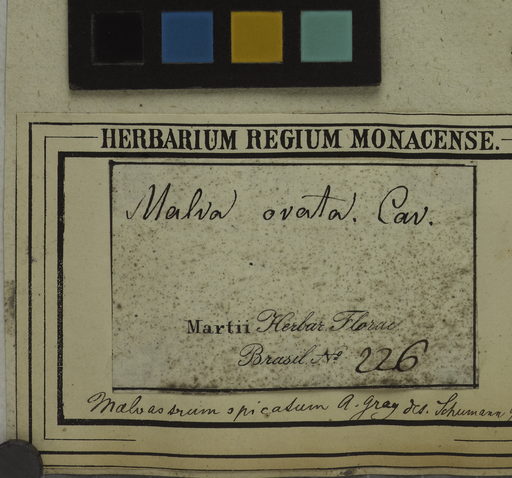 HERBARIUM REGIUM MONACENSE.
Malva ovata. Cav.
Martii Herbar. Florae
Brasil. No 226
Malvastrum spicatum A. Gray det. Schumann